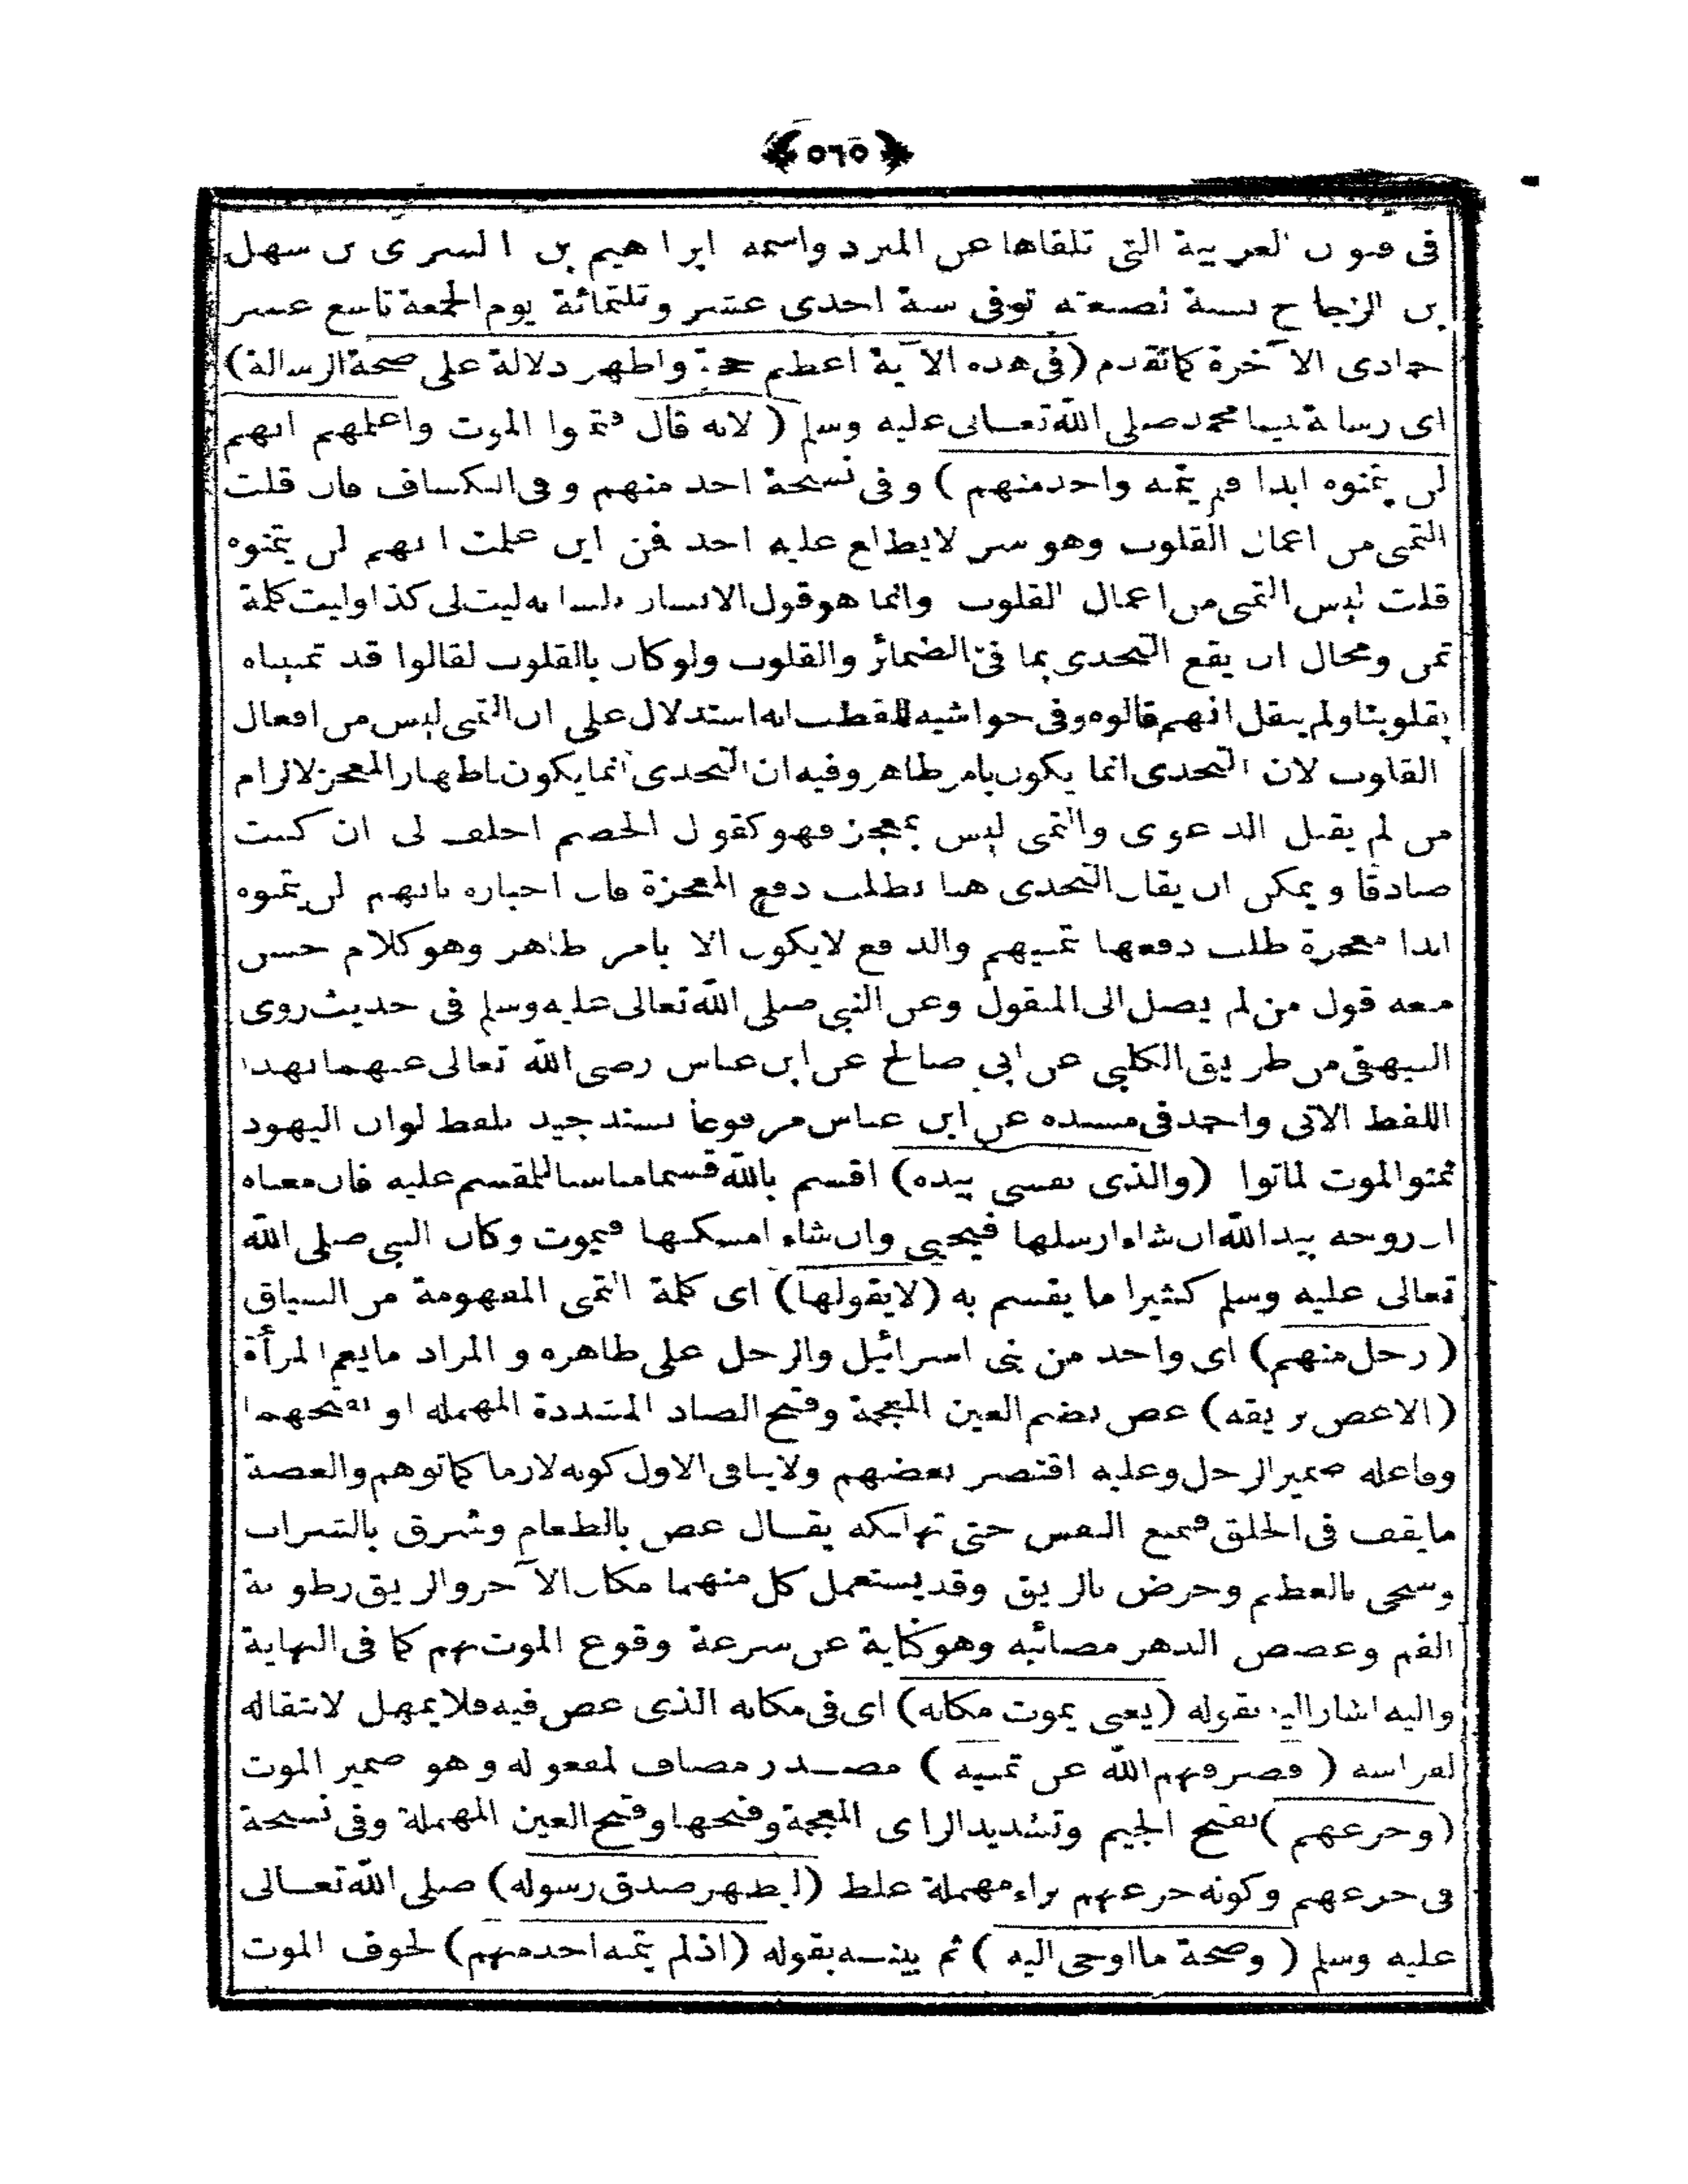 ﴿٥٦٥﴾
فى فنون العربية التى تلقاها عن المبرد واسمه ابراهيم بن السرى بن سهل
بن الزجاج نسبة لصنعته توفى سنة احدى عشر وثلثمائة يوم الجمعة تاسع عشر
جمادى الآخرة كما تقدم (فى هذه الآية اعظم حجة واظهر دلالة على صحة الرسالة)
اى رسالة نبينا محمد صلى الله تعالى عليه وسلم (لانه قال فتمنوا الموت واعلمهم انهم
لن يتمنوه ابدا فلم يتمنه واحد منهم) وفى نسخة احد منهم وفى الكشاف فان قلت
التمنى من اعمال القلوب وهو سر لايطلع عليه احد فمن اين علمت انهم لن يتمنوه
قلت ليس التمنى من اعمال القلوب وانما هو قول الانسان بلسانه ليت لى كذا وليت كلة
تمن ومحال ان يقع التحدى بما فى الضمائر والقلوب ولوكان بالقلوب لقالوا قد تمنيناه
بقلوبنا ولم ينقل انهم قالوه وفى حواشيه للقطب انه استدلال على ان التمنى ليس من افعال
القلوب لان التحدى انما يكون بامر ظاهر وفيه ان التحدى انما يكون باظهار المعجز لالزام
من لم يقبل الدعوى والتمنى ليس بمعجز فهو كقول الخصم احلف لى ان كنت
صادقا ويمكن ان يقال التحدى هنا بطلب دفع المعجزة فان اخباره بانهم لن يتمنوه
ابدا معجزة طلب دفعها بتمنيهم والدفع لايكون الا بامر ظاهر وهو كلام حسن
معه قول من لم يصل الى المنقول وعن النبى صلى الله تعالى عليه وسلم فى حديث روى
البيهقى من طريق الكلبى عن ابى صالح عن ابن عباس رضى الله تعالى عنهما بهذا
اللفظ الاتى واحمد فى مسنده عن ابن عباس مرفوعا بسند جيد بلفظ لوان اليهود
تمنوالموت لماتوا (والذى نفسى بيده) اقسم بالله قسما مناسبا للمقسم عليه فان معناه
ان روحه بيد الله ان شاء ارسلها فيحيى وان شاء امسكها فيموت وكان النبى صلى الله
تعالى عليه وسلم كثيرا ما يقسم به (لايقولها) اى كلة التمنى المفهومة من السياق
(رجل منهم) اى واحد من بنى اسرائيل والرجل على ظاهره والمراد مايعم المرأة
(الاغص بريقه) غص بضم الغين المعجمة وفتح الصاد المشددة المهمله او بفتحهما
وفاعله ضمير الرجل وعليه اقتصر بعضهم ولاينافى الاول كونه لازما كماتوهم والغصة
مايقف فى الحلق فيمنع النفس حتى تهلكه يقال غص بالطعام وشرق بالشراب
وشجى بالعظم وجرض بالريق وقديستعمل كل منهما مكان الآخر والريق رطوبة
الفم وغصص الدهر مصائبه وهو كناية عن سرعة وقوع الموت بهم كما فى النهاية
واليه اشار اليه بقوله (يعنى يموت مكانه) اى فى مكانه الذى غص فيه فلايمهل لانتقاله
لفراشه (فصرفهم الله عن تمنيه) مصدر مضاف لمفعوله وهو ضمير الموت
(وجزعهم) بفتح الجيم وتشديد الزاى المعجمة وفتحها وفتح العين المهملة وفى نسخة
فى جزعهم وكونه جرعهم براء مهملة غلط (ليظهر صدق رسوله) صلى الله تعالى
عليه وسلم (وصحة ما اوحى اليه) ثم بينه بقوله (اذلم يتمنه احد منهم) لخوف الموت